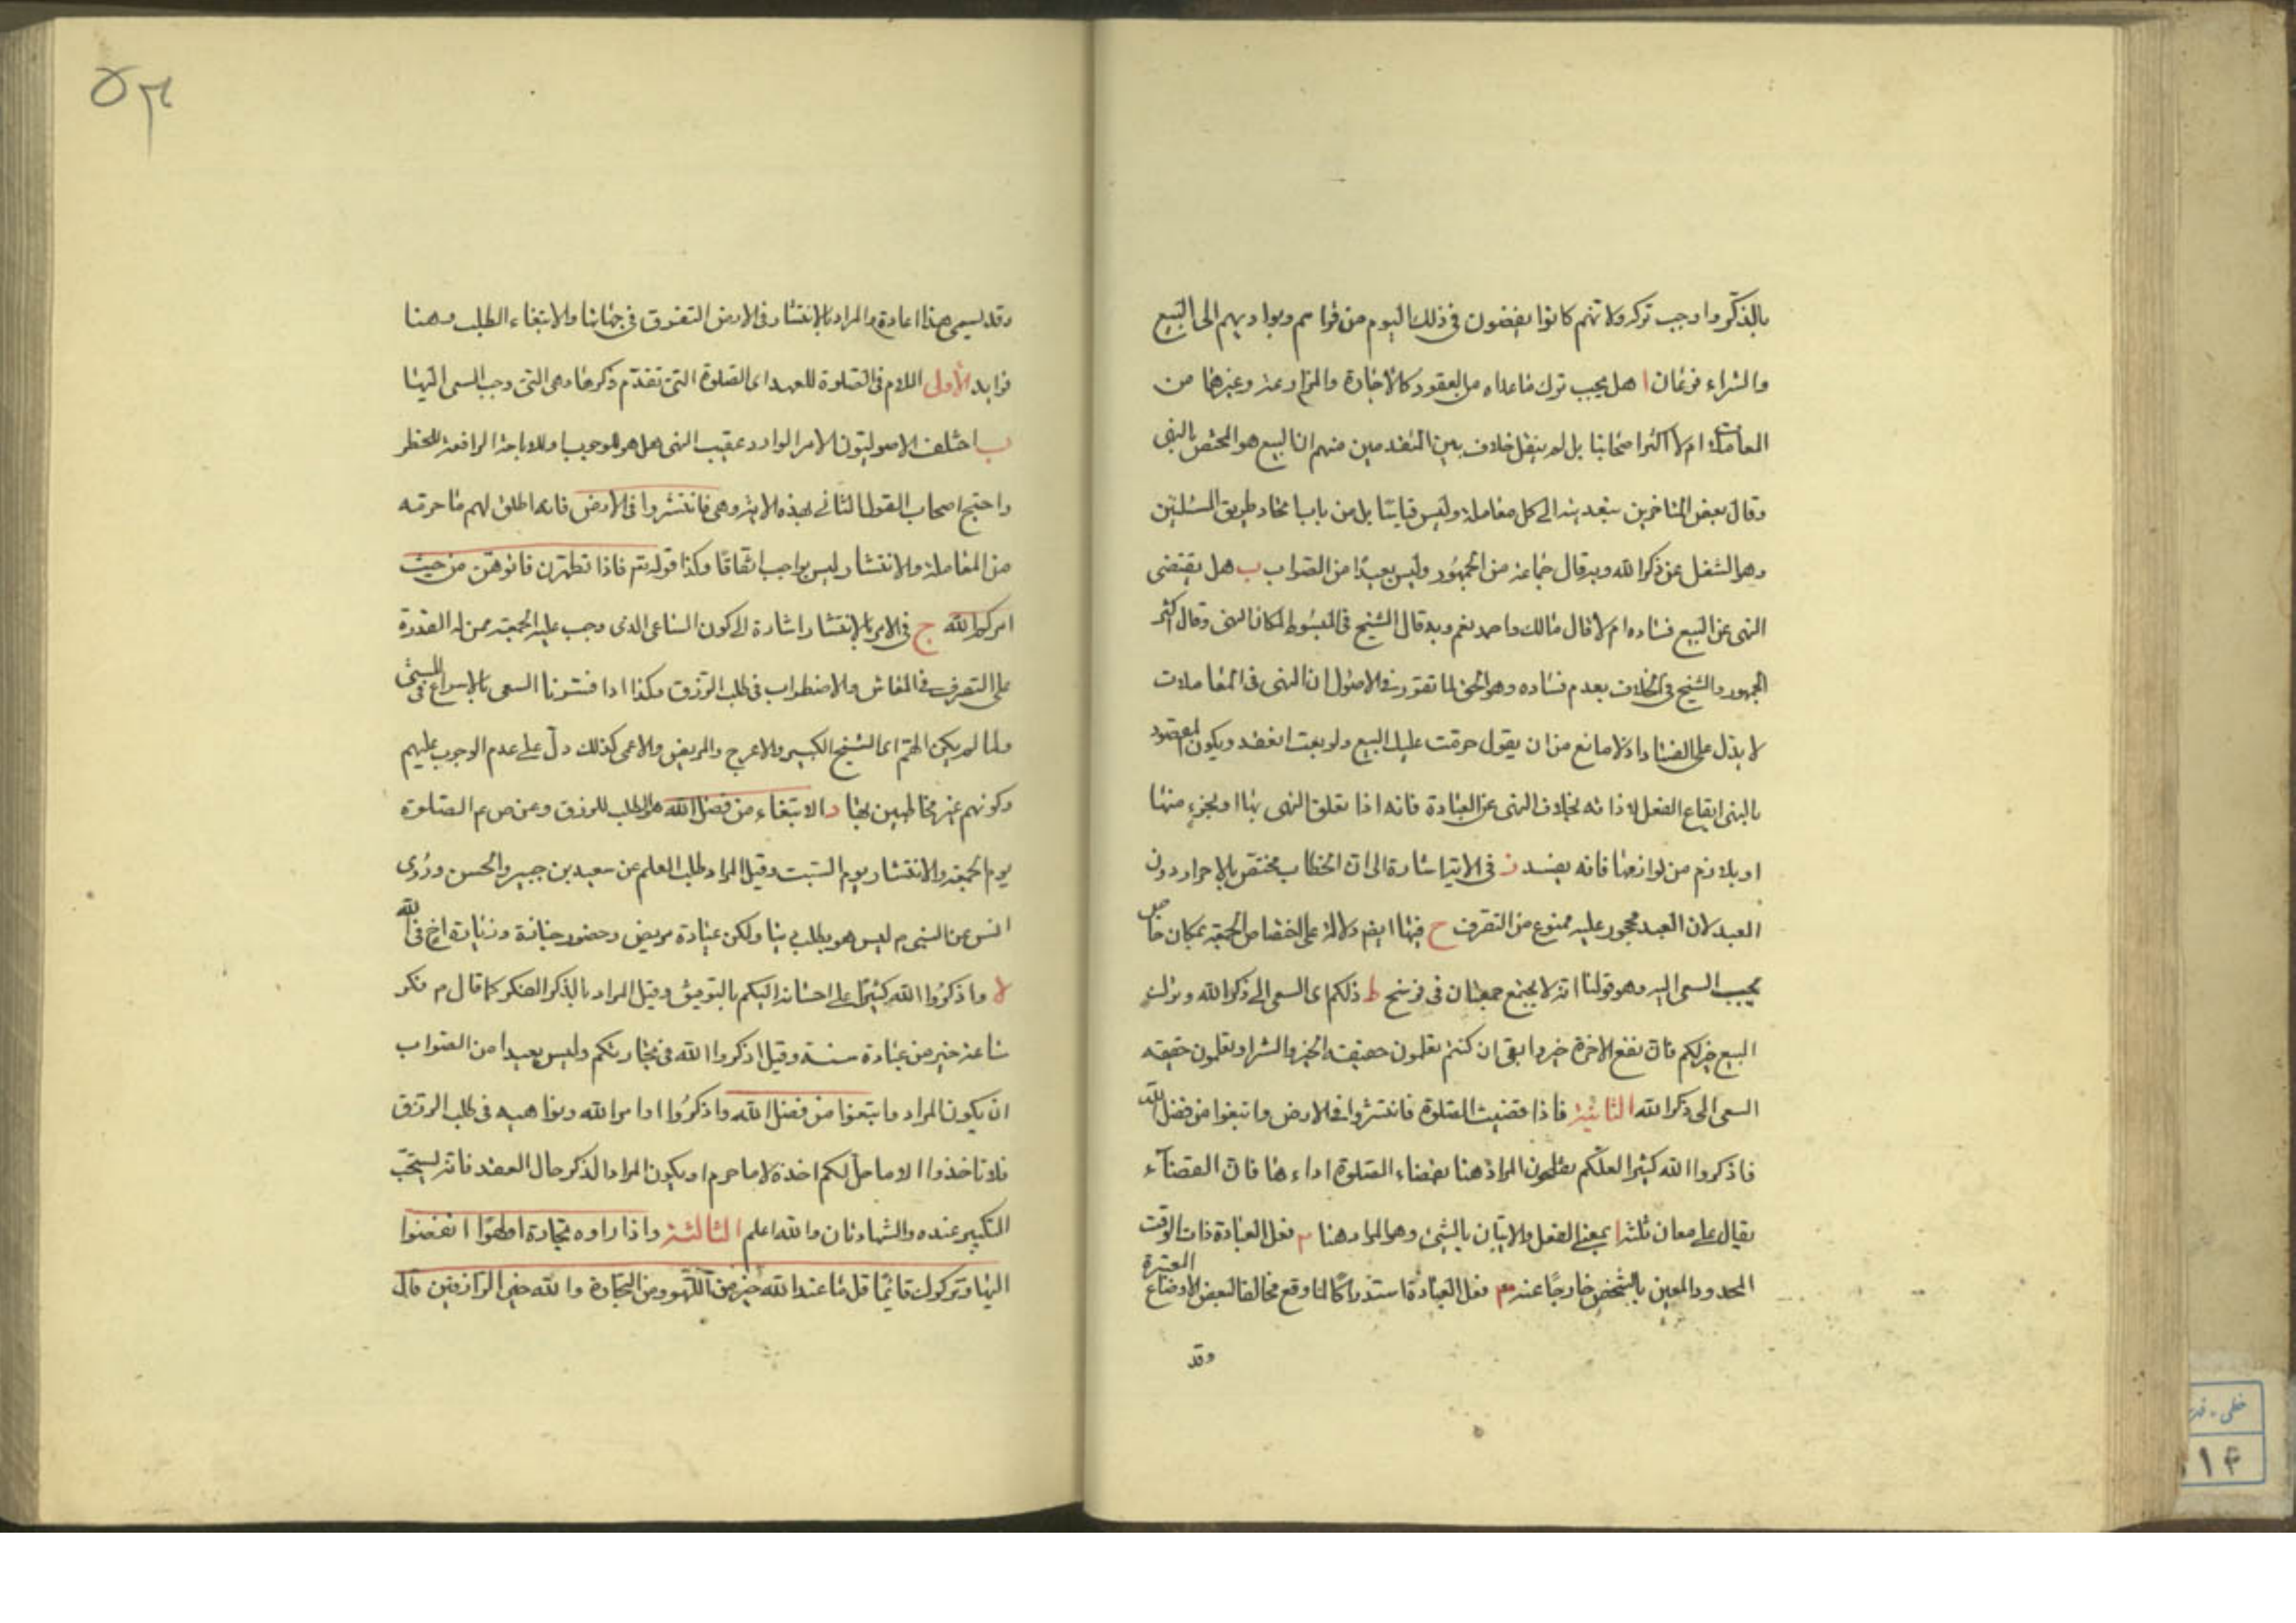 بالذكر واوجب تركه ولانهم كانوا يفيضون في ذلك اليوم من قراهم وبواديهم الى البيع
والشراء فرعان ا هل يجب ترك ما عداه من العقود كالاجارة والمزارعة وغيرها من
المعاملات ام لا اكثر اصحابنا بل لم ينقل خلاف بين المتقدمين منهم ان البيع هو المختص بالنهى
وقال بعض المتاخرين بتعديته الى كل معاملة وليس قياسا بل من باب اتحاد طريق المسئلتين
وهو الشغل عن ذكر الله وبه قال جماعة من الجمهور وليس بعيدا من الصواب ب هل يقتضى
النهى عن البيع فساده ام لا قال مالك واحمد نعم وبه قال الشيخ فى المبسوط لمكان النهى وقال اكثر
الجمهور والشيخ فى الخلاف بعدم فساده وهو الحق لما تقرر فى الاصول ان النهى فى المعاملات
لا يدل على الفساد اذ لا مانع من ان يقول حرمت عليك البيع ولو بعت انعقد ويكون المقصود
بالنهى ايقاع الفعل لا ذاته بخلاف النهى عن العبادة فانه اذا تعلق النهى بها او بجزء منها
او بلازم من لوازمها فانه يفسد ز فى الاية اشارة الى ان الخطاب مختص بالاحرار دون
العبد لان العبد محجور عليه ممنوع من التصرف ح فيها ايضا دلالة على اختصاص الجمعة بمكان خاص
يجب السعى اليه وهو قولنا انه لا يجتمع جمعتان فى فرسخ ط ذلكم اى السعى الى ذكر الله وترك
البيع خير لكم فان نفع الاخرة خير وابقى ان كنتم تعلمون حقيقة الخير والشر او تعلمون حقيقة
السعى الى ذكر الله الثانية فاذا قضيت الصلوة فانتشروا فى الارض وابتغوا من فضل الله
فاذكروا الله كثيرا لعلكم تفلحون المراد هنا بقضاء الصلوة اداءها فان القضاء
يقال على معان ثلثة ا بمعنى الفعل والاتيان بالشئ وهو المراد هنا ب فعل العبادة ذات الوقت
المحدود المعين بالشخص خارجا عنه ج فعل العبادة استدراكا لما وقع مخالفا لبعض الاوضاع المعتبرة
وقد
٥٣
وقد يسمى هذا اعادة والمراد بالانتشار فى الارض التفرق فى جهاتها والابتغاء الطلب وهنا
فوايد الاولى اللام فى الصلوة للعهد اى الصلوة التى تقدم ذكرها وهى التى وجب السعى اليها
ب اختلف الاصوليون الامر الوارد عقيب النهى هل هو للوجوب او للاباحة الرافعة للحظر
واحتج اصحاب القول الثانى بهذه الاية وهى فانتشروا فى الارض فانه اطلق لهم ما حرمه
من المعاملة والانتشار ليس بواجب اتفاقا وكذا قوله تعم فاذا تطهرن فاتوهن من حيث
امركم الله ج فى الامر بالانتشار اشارة الى كون الساعى الذى وجب عليه الجمعة ممن له القدرة
على التصرف فى المعاش والاضطراب فى طلب الرزق وكذا اذا فسرنا السعى بالاسراع فى المشى
ولما لم يكن الهم اى الشيخ الكبير والاعرج والمريض والاعمى كذلك دل على عدم الوجوب عليهم
وكونهم غير مخاطبين بها د الابتغاء من فضل الله هو الطلب للرزق وعن ص عم الصلوة
يوم الجمعة والانتشار يوم السبت وقيل المراد طلب العلم عن سعيد بن جبير والحسن وروى
انس عن النبى ص ليس هو بطلب دنيا ولكن عيادة مريض وحضور جنازة وزيارة اخ فى الله
ه واذكروا الله كثيرا على احسانه اليكم بالتوفيق وقيل المراد بالذكر الفكر كما قال ص فكر
ساعة خير من عبادة سنة وقيل اذكروا الله فى تجارتكم وليس بعيدا من الصواب
ان يكون المراد وابتغوا من فضل الله واذكروا اوامر الله ونواهيه فى طلب الرزق
فلا تاخذوا الا ما حل لكم اخذه لا ما حرم او يكون المراد الذكر حال العقد فانه يستحب
التكبير عنده والشهادتان والله اعلم الثالثة واذا راوه تجارة او لهوا انفضوا
اليها وتركوك قائما قل ما عند الله خير من اللهو ومن التجارة والله خير الرازقين قال
خطى